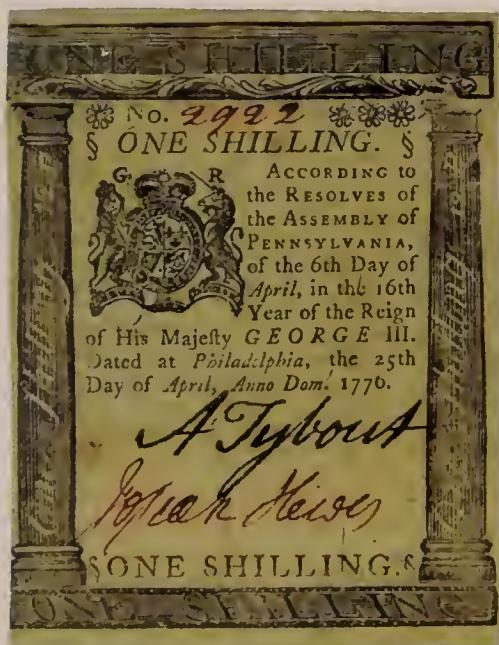 ONE SHILLING
No. 2922
§ ONE SHILLING. §
G R
ACCORDING to
the RESOLVES of
the ASSEMBLY of
PENNSYLVANIA,
of the 6th Day of
April, in the 16th
Year of the Reign
of His Majeſty GEORGE III.
Dated at Philadelphia, the 25th
Day of April, Anno Dom. 1776.
A Tybout
Josiah Hewes
§ONE SHILLING.§
ONE SHILLING
One Shilling
One Shilling